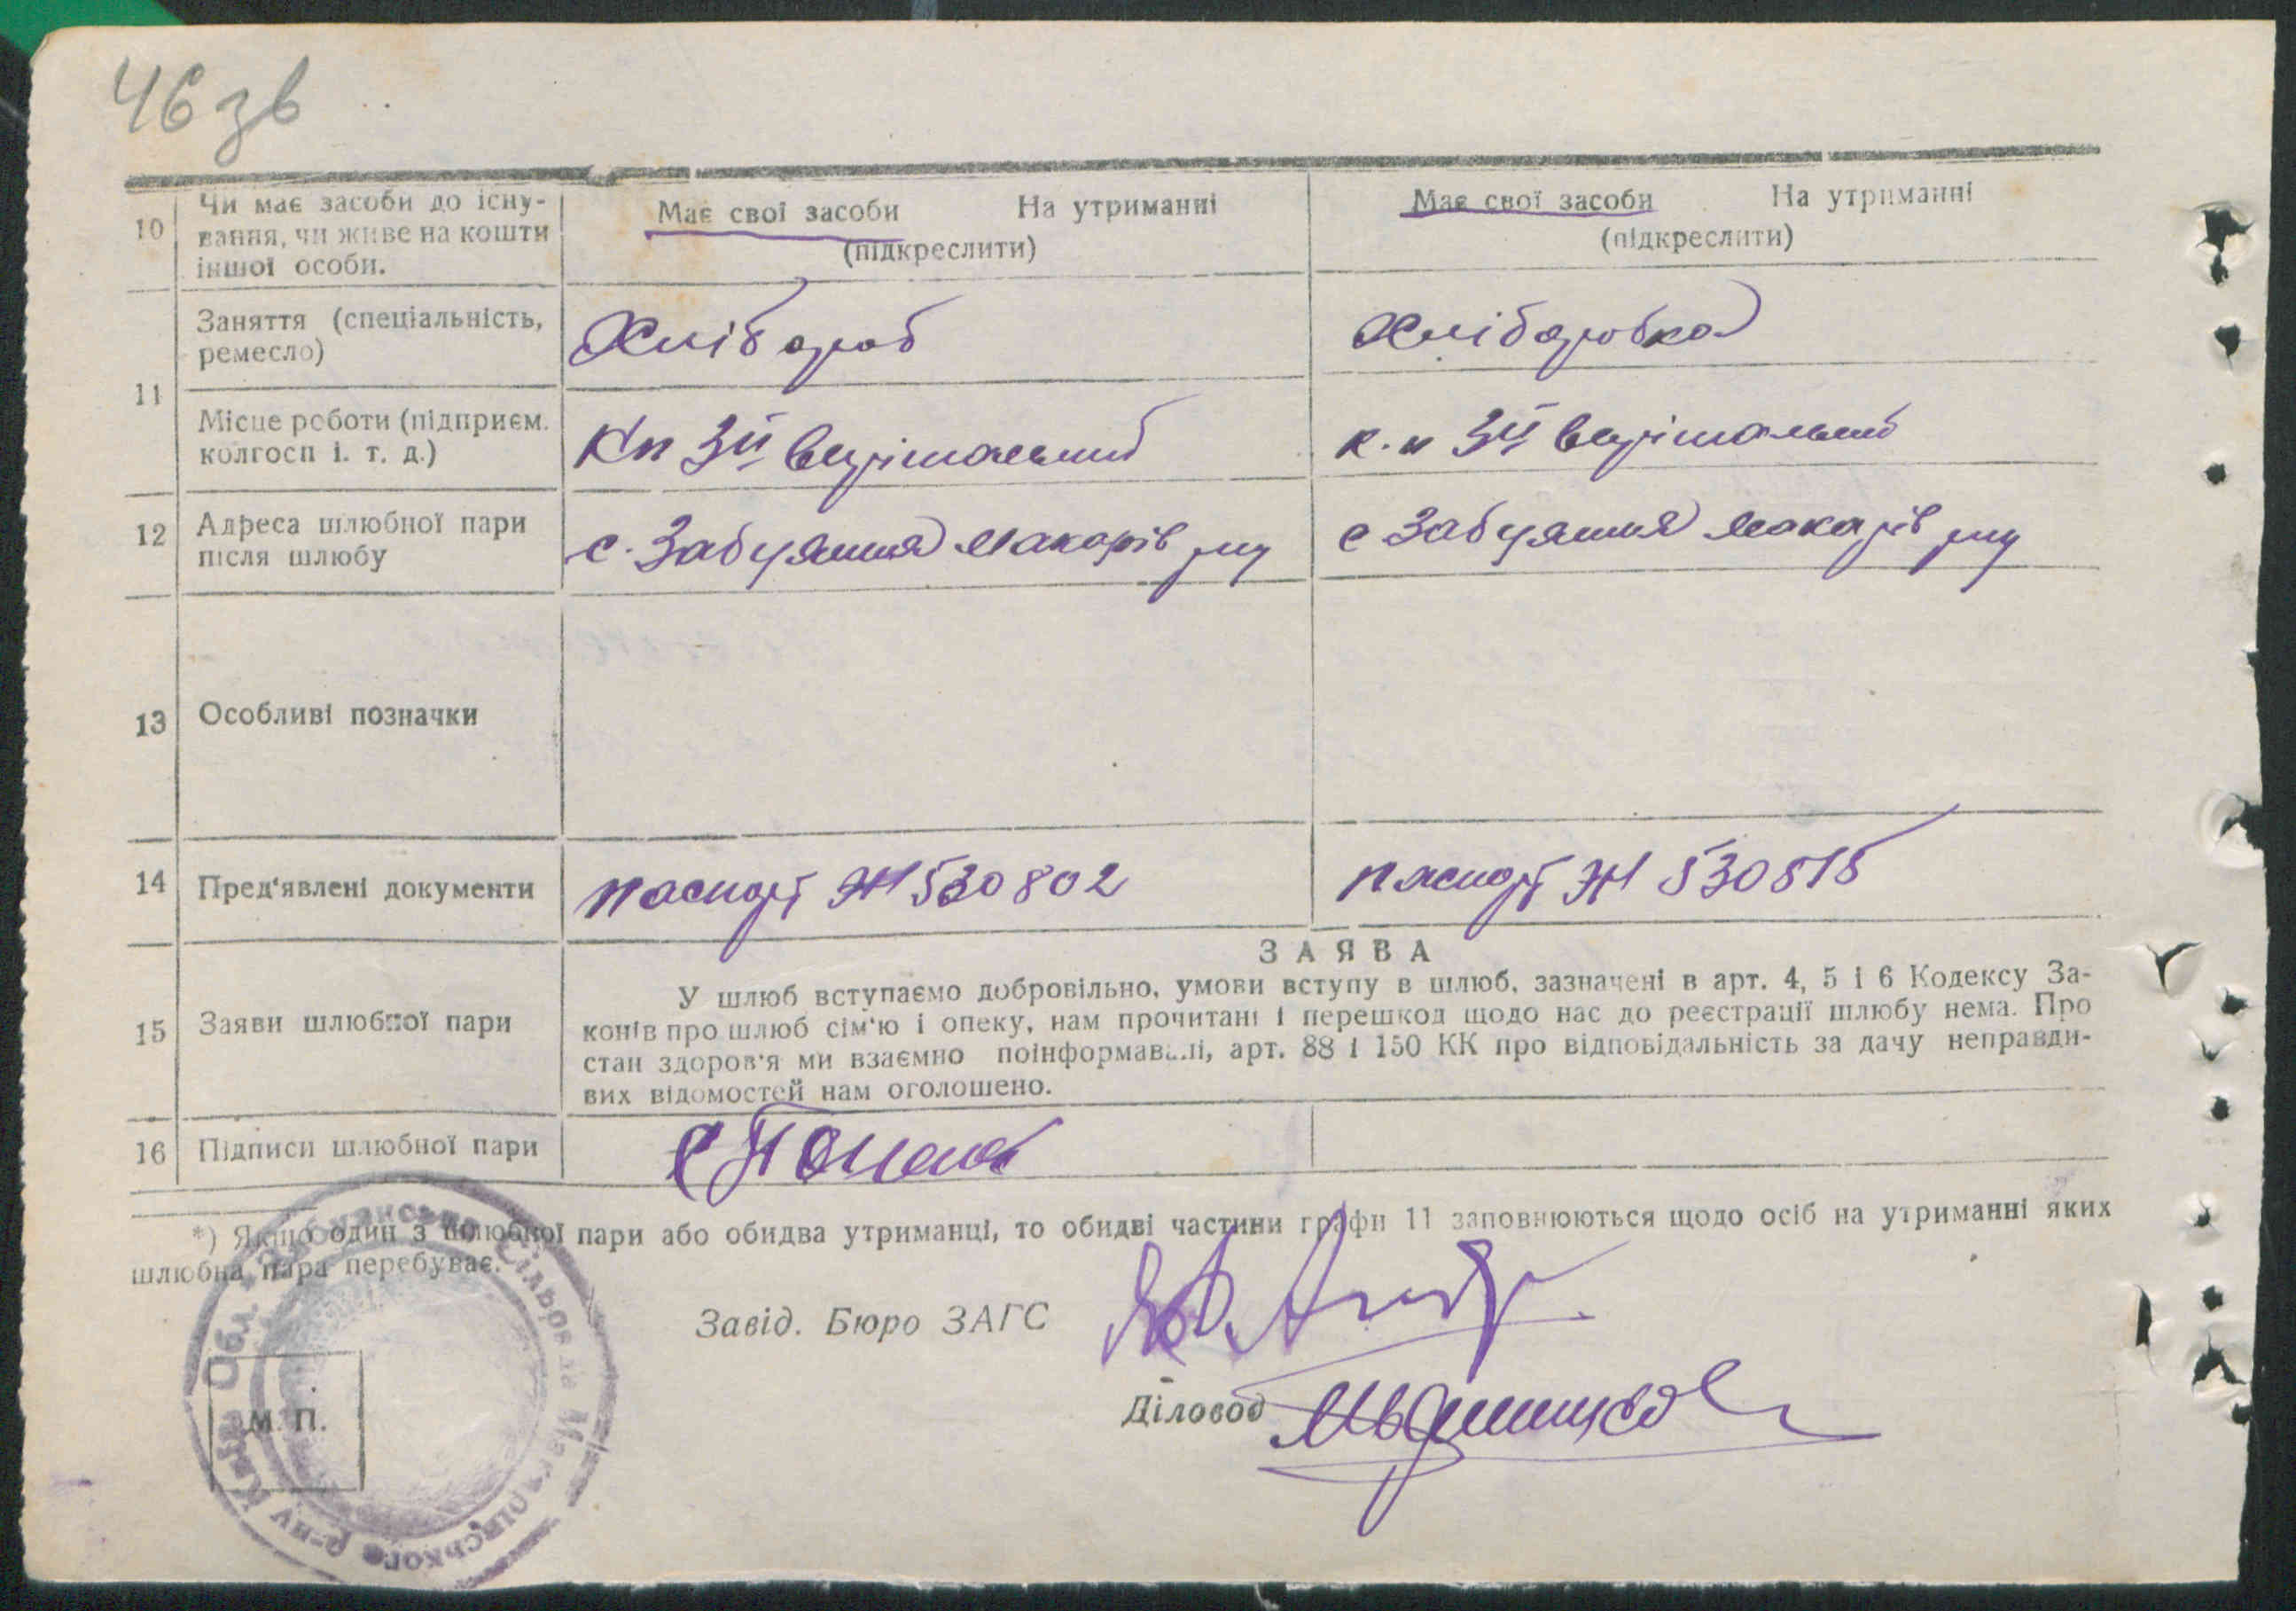 46 зв
10 Чи має засоби до існу-
вання, чи живе на кошти
іншої особи.
Має свої засоби На утриманні
(підкреслити)
Має свої засоби На утриманні
(підкреслити)
11
Заняття (спеціальність,
ремесло)
Хлібороб
Хліборобка
Місце роботи (підприєм.
колгосп і. т. д.)
Кп 3й вирішальний
к.п 3й вирішальний
12 Адреса шлюбної пари
після шлюбу
с. Забуяння Макарів р-ну
с Забуяння Макарів р-ну
13 Особливі позначки
14 Пред'явлені документи
паспорт ЖІ 530802
паспорт ЖІ 530815
15 Заяви шлюбної пари
ЗАЯВА
У шлюб вступаємо добровільно, умови вступу в шлюб, зазначені в арт. 4, 5 і 6 Кодексу За-
конів про шлюб сім'ю і опеку, нам прочитані і перешкод щодо нас до реєстрації шлюбу нема. Про
стан здоров'я ми взаємно поінформавалі, арт. 88 і 150 КК про відповідальність за дачу неправди-
вих відомостей нам оголошено.
16 Підписи шлюбної пари
*) Якщо один з шлюбної пари або обидва утриманці, то обидві частини графи 11 заповнюються щодо осіб на утриманні яких
шлюбна пара перебуває.
Завід. Бюро ЗАГС
Діловод
М. П.
Забуянська Сільрова Макарівського р-ну Київ. Обл.